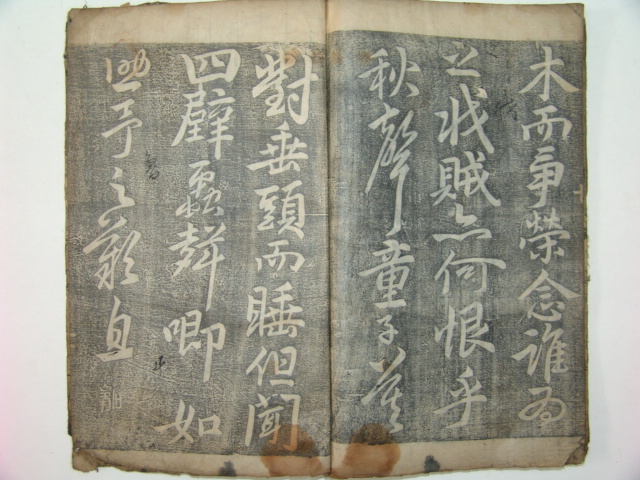 木而爭榮念誰為
之戕賊亦何恨乎
秋聲童子莫
對垂頭而睡但聞
四壁蟲聲唧如
助予之歎息